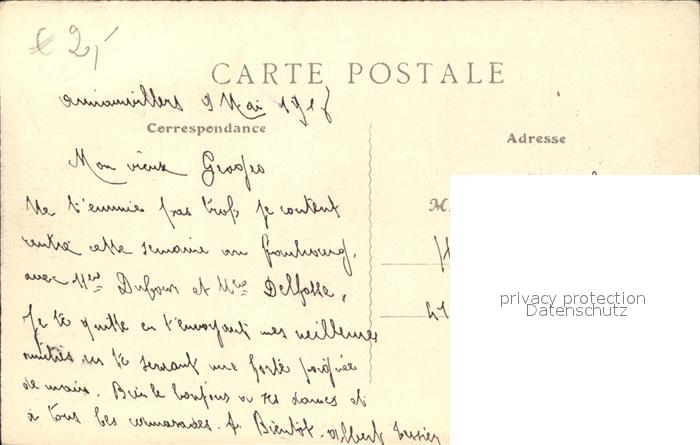 € 2,-
CARTE POSTALE
9 Mai 191
Correspondance
Adresse
Mon vieux Georges
Ne t'ennuie pas trop, je content
rentré cette semaine au faubourg,
avec Mrs Dufour et Delfosse,
M.
Je te quitte en t'envoyant mes meilleures
amitiés en te serrant une forte poignée
de main. Bien le bonjour à ces dames et
à tous les camarades. A Bientôt. Albert
privacy protection
Datenschutz